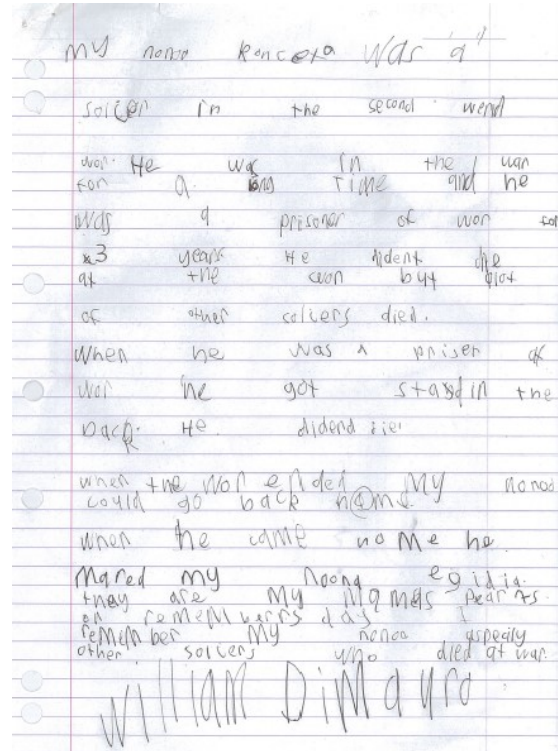 My nonoo Konceta was "a"
solcer in the second werd
wor. He was in the war
for a long time and he
was a prisoner of wor for
3 years He dident die
at the wor but alot
of other solcers died.
When he was a priser of
wor he got stabd in the
back. He didend die
when the wor ended My nonoo
could go back home.
when he came home he
mared my noona egidia.
they are My Mamas pearts.
on rememberrs day I
remember My nonoo aspecily
other solcers who died at war.
William DiMauro